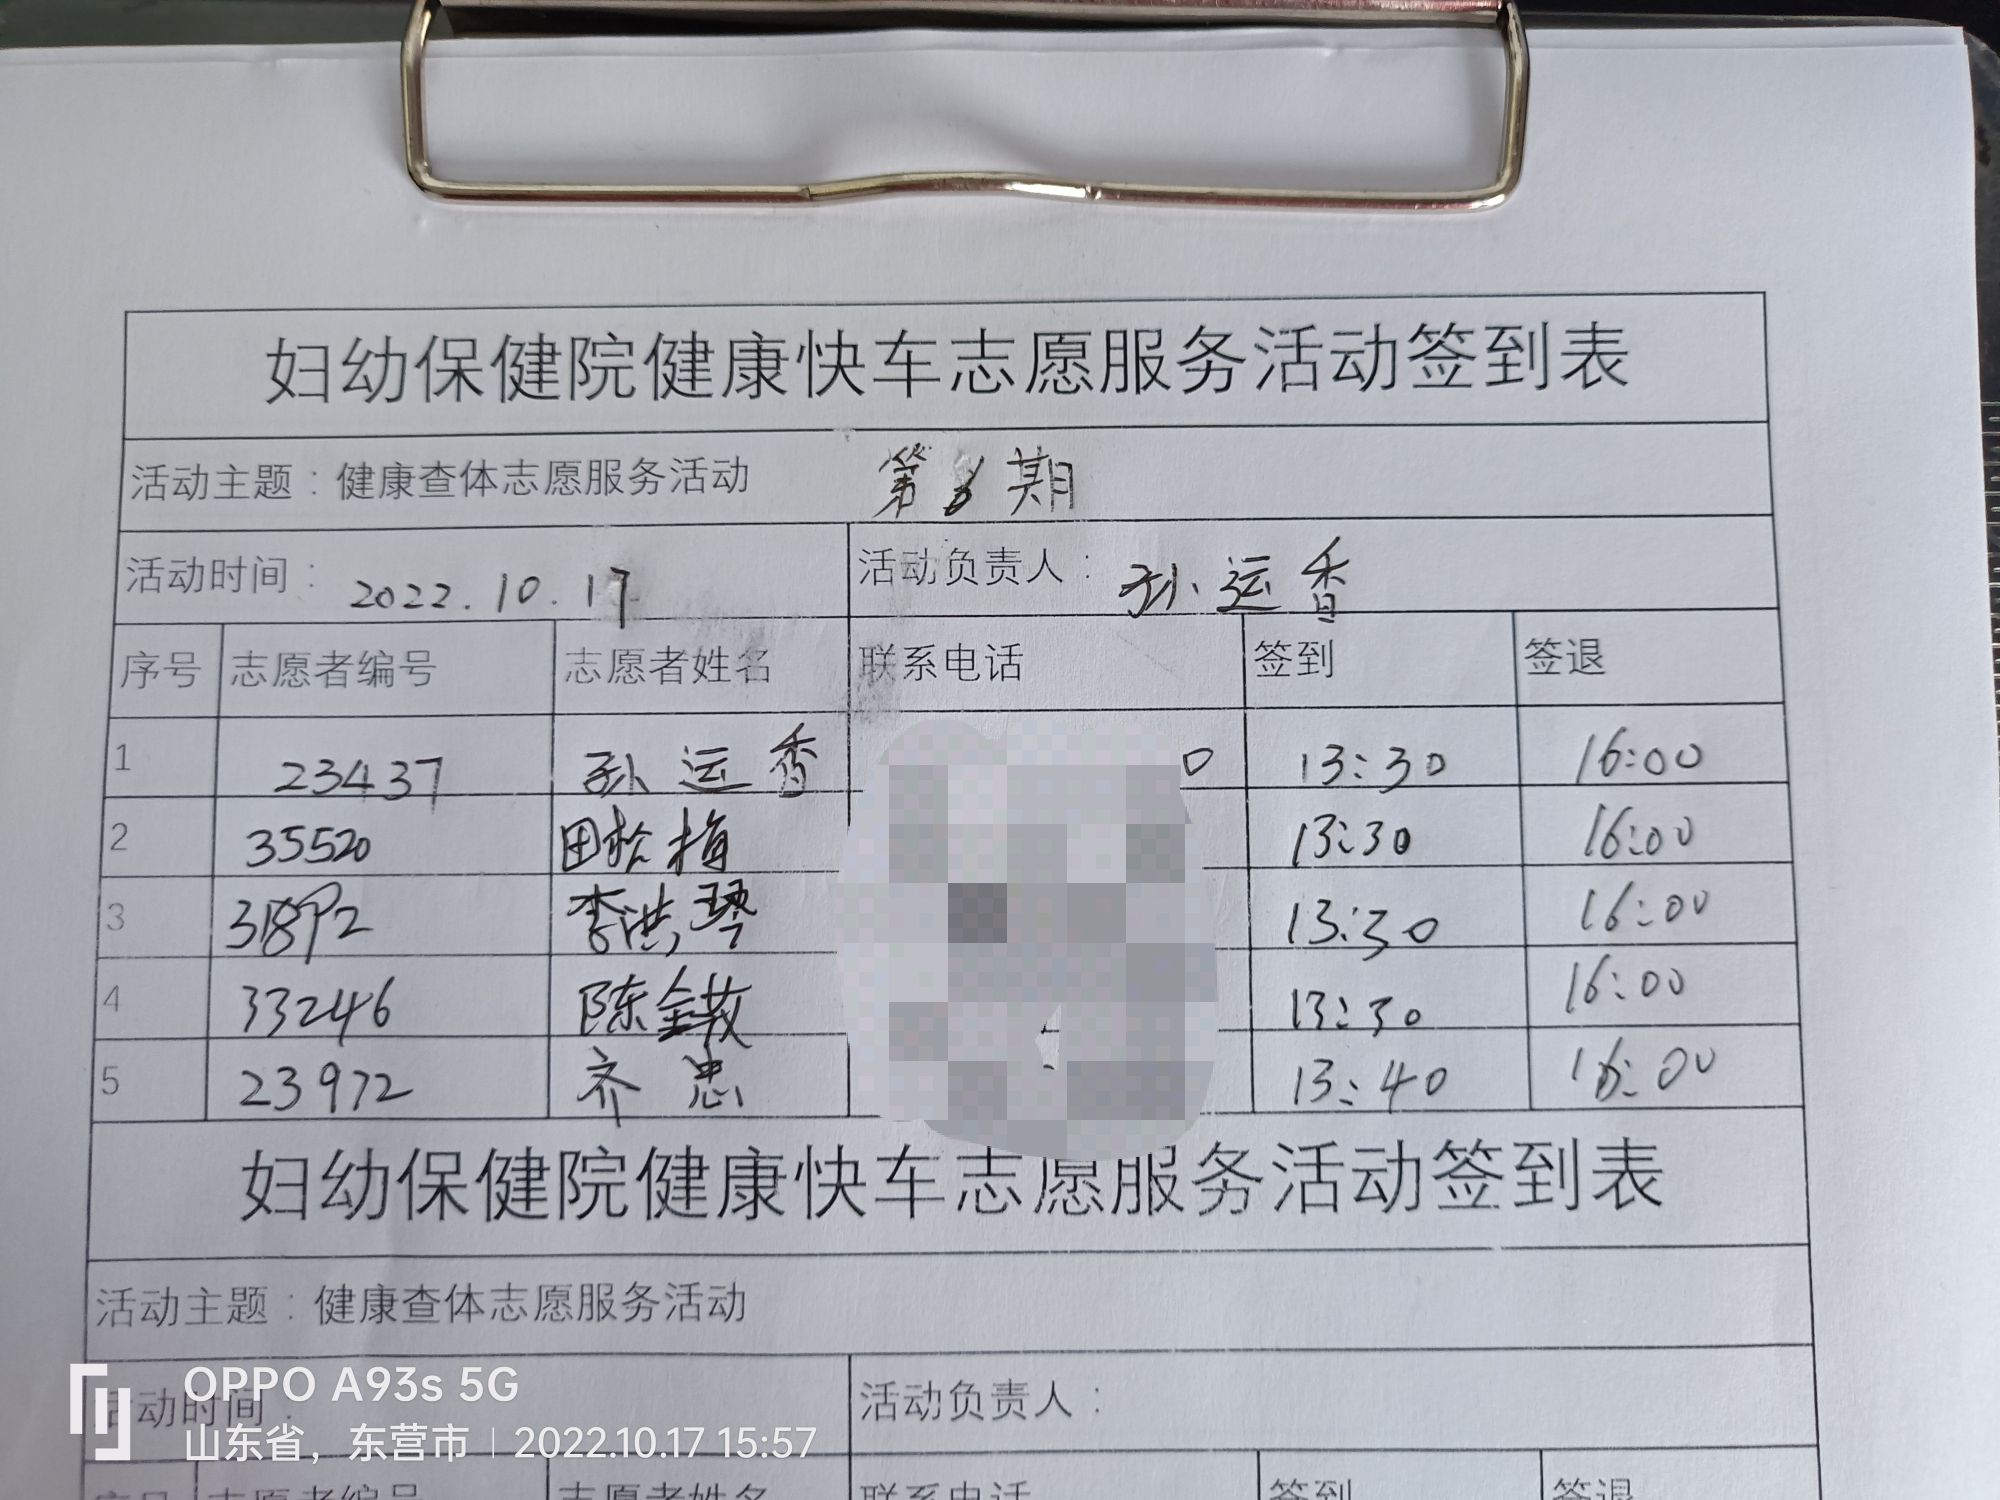 妇幼保健院健康快车志愿服务活动签到表
活动主题：健康查体志愿服务活动 第 期
活动时间：2022.10.17 活动负责人：孙运香
序号 志愿者编号 志愿者姓名 联系电话 签到 签退
1 23437 孙运香 0 13:30 16:00
2 35520 田松梅 13:30 16:00
3 31892 李洪琴 13:30 16:00
4 33246 陈金 13:30 16:00
5 23972 齐忠 13:40 16:00
妇幼保健院健康快车志愿服务活动签到表
活动主题：健康查体志愿服务活动
活动时间： 活动负责人：
序号 志愿者编号 志愿者姓名 联系电话 签到 签退
OPPO A93s 5G
山东省，东营市 | 2022.10.17 15:57